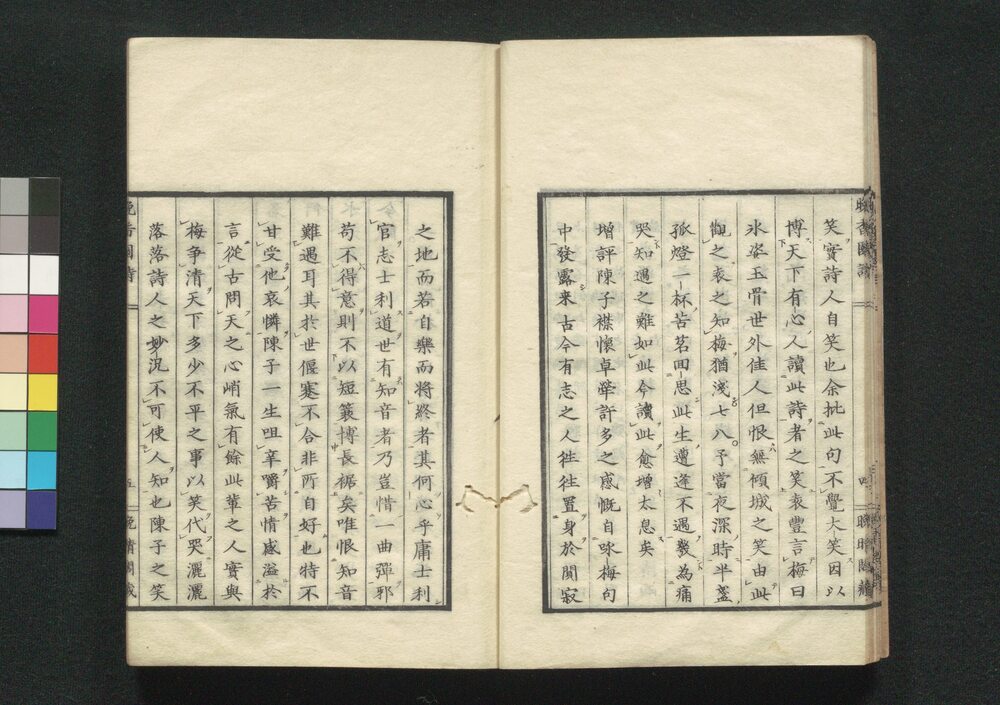 笑實詩人自笑也余批此句不覺大笑因以
博天下有心人讀此詩者之笑哀豐言梅曰
氷姿玉骨世外佳人但恨無傾城之笑由此
觀之哀之知梅猶淺七八予當夜深時半盞
孤燈一杯苦茗回思此生遭逢不遇幾為痛
哭知遇之難如此今讀此愈增太息矣
増評陳子襟懷卓犖許多之感慨自咏梅句
中發露来古今有志之人徃徃置身於閴寂
之地而若自樂而将終者其何心乎庸士利
官志士利道世有知音者乃豈惜一曲彈邪
苟不得意則不以短簑博長裾矣唯恨知音
難遇耳其於世偃蹇不合非所自好也特不
甘受他哀憐陳子一生咀辛嚼苦情感溢於
言從古問天之心峭氣有餘此輩之人實與
梅争清天下多少不平之事以笑代哭灑灑
落落詩人之妙況不可使人知也陳子之笑
五